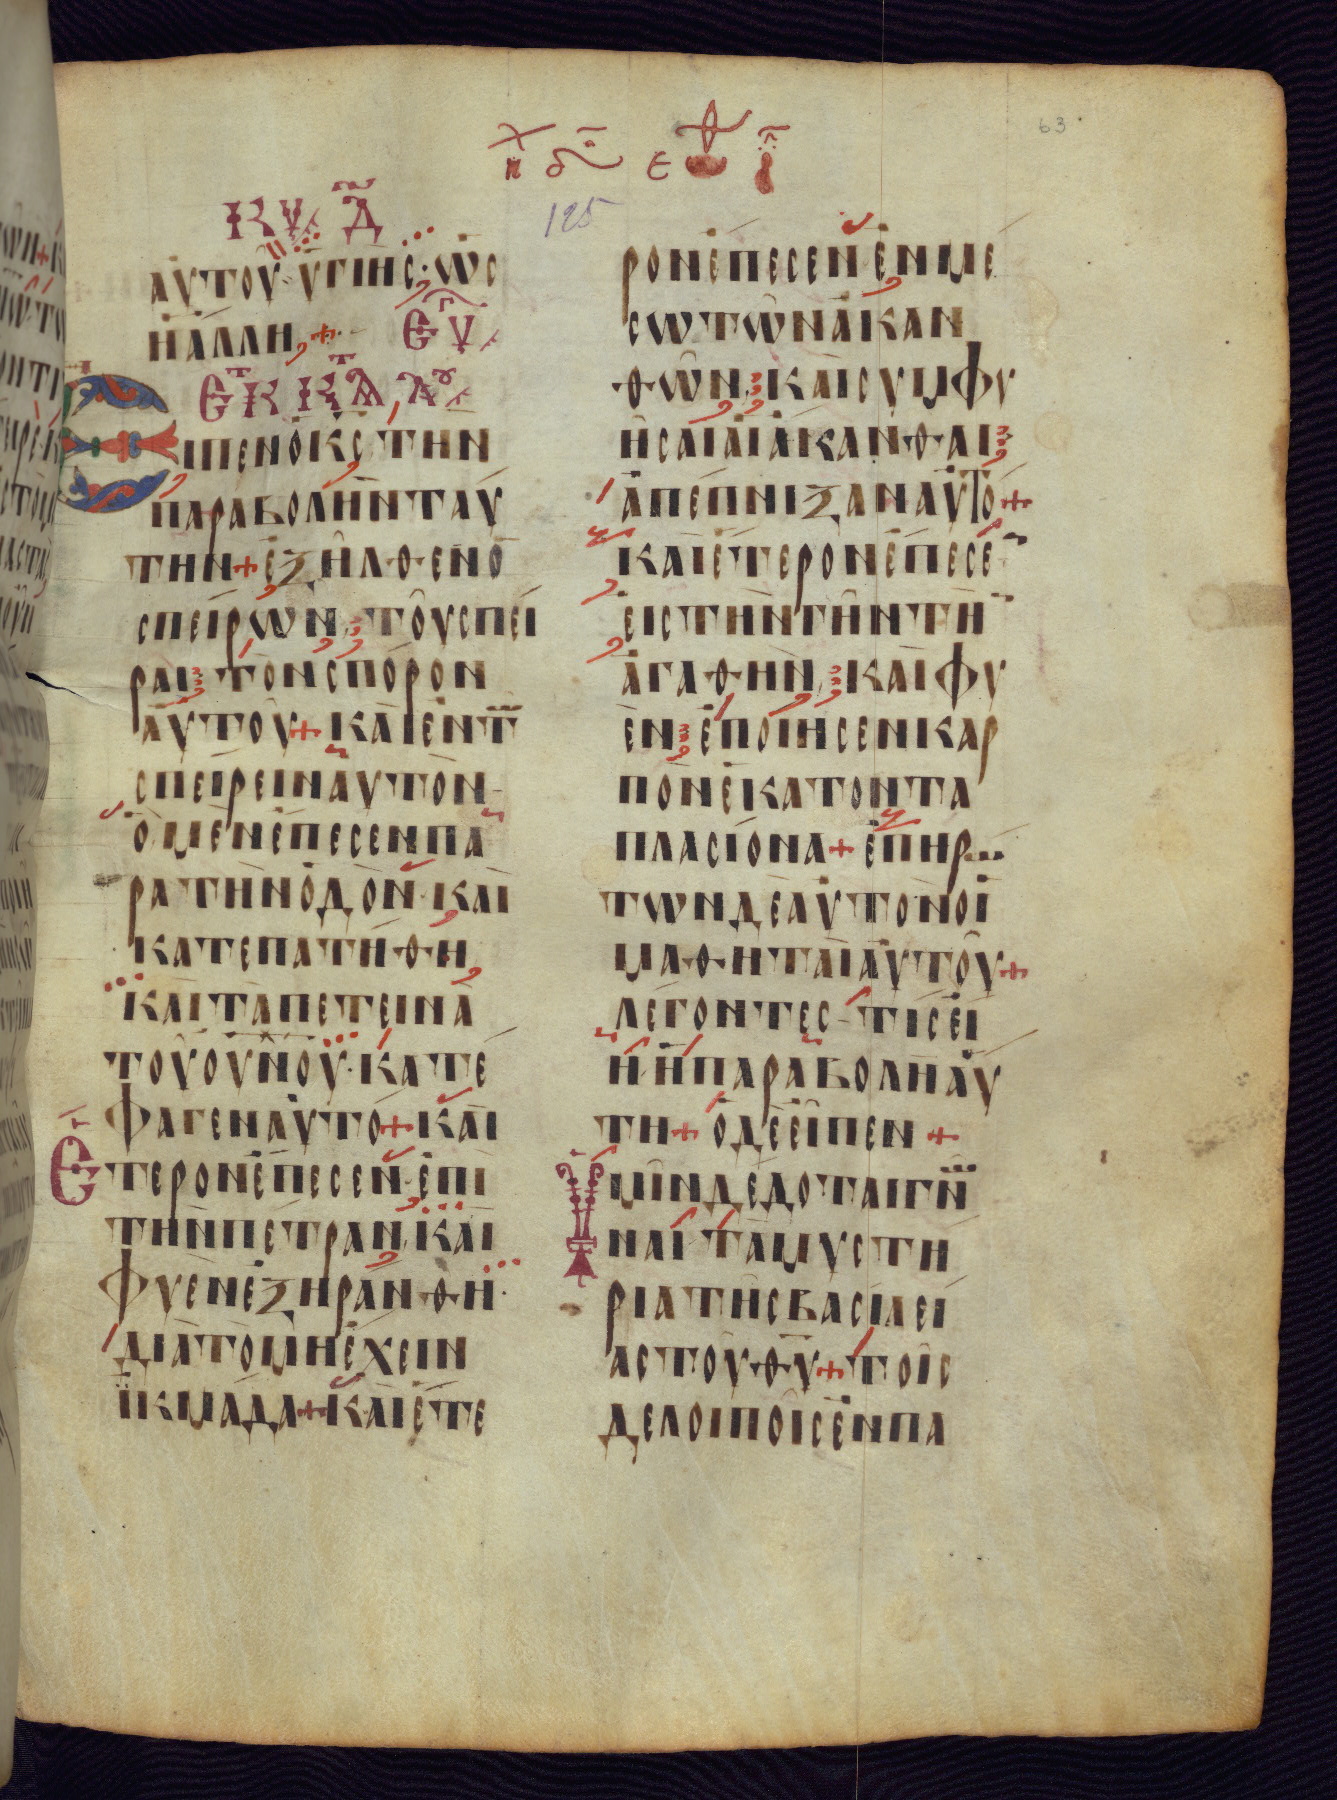 63
125
ΚΥ Δ
ΑΥΤΟΥ ΥΓΙΗΣ· ΩΣ
Η ΑΛΛΗ +
ΕΥ
ΕΚ Κ Τ ΛΥ
ΕΙΠΕΝ Ο ΚΣ ΤΗΝ
ΠΑΡΑΒΟΛΗΝ ΤΑΥ
ΤΗΝ + ΕΞΗΛΘΕΝ Ο
ΣΠΕΙΡΩΝ, ΤΟΥ ΣΠΕΙ
ΡΑΙ ΤΟΝ ΣΠΟΡΟΝ
ΑΥΤΟΥ + ΚΑΙ ΕΝ Τ
ΣΠΕΙΡΕΙΝ ΑΥΤΟΝ
Ο ΜΕΝ ΕΠΕΣΕΝ ΠΑ
ΡΑ ΤΗΝ ΟΔΟΝ· ΚΑΙ
ΚΑΤΕΠΑΤΗΘΗ
ΚΑΙ ΤΑ ΠΕΤΕΙΝΑ
ΤΟΥ ΟΥΝΟΥ· ΚΑΤΕ
ΦΑΓΕΝ ΑΥΤΟ + ΚΑΙ
ΕΤΕΡΟΝ ΕΠΕΣΕΝ ΕΠΙ
ΤΗΝ ΠΕΤΡΑΝ, ΚΑΙ
ΦΥΕΝ ΕΞΗΡΑΝΘΗ·
ΔΙΑ ΤΟ ΜΗ ΕΧΕΙΝ
ΙΚΜΑΔΑ + ΚΑΙ ΕΤΕ
ΡΟΝ ΕΠΕΣΕΝ ΕΝ ΜΕ
ΣΩ ΤΩΝ ΑΚΑΝ
ΘΩΝ, ΚΑΙ ΣΥΜΦΥ
ΗΣΑΙ ΑΙ ΑΚΑΝΘΑΙ
ΑΠΕΠΝΙΞΑΝ ΑΥΤΟ +
ΚΑΙ ΕΤΕΡΟΝ ΕΠΕΣΕ
ΕΙΣ ΤΗΝ ΓΗΝ ΤΗ
ΑΓΑΘΗΝ, ΚΑΙ ΦΥ
ΕΝ ΕΠΟΙΗΣΕΝ ΚΑΡ
ΠΟΝ ΕΚΑΤΟΝΤΑ
ΠΛΑΣΙΟΝΑ + ΕΠΗΡ
ΤΩΝ ΔΕ ΑΥΤΟΝ ΟΙ
ΜΑΘΗΤΑΙ ΑΥΤΟΥ +
ΛΕΓΟΝΤΕΣ ΤΙΣ ΕΙ
Η Η ΠΑΡΑΒΟΛΗ ΑΥ
ΤΗ + Ο ΔΕ ΕΙΠΕΝ +
ΥΜΙΝ ΔΕΔΟΤΑΙ ΓΝ
ΝΑΙ ΤΑ ΜΥΣΤΗ
ΡΙΑ ΤΗΣ ΒΑΣΙΛΕΙ
ΑΣ ΤΟΥ ΘΥ + ΤΟΙΣ
ΔΕ ΛΟΙΠΟΙΣ ΕΝ ΠΑ